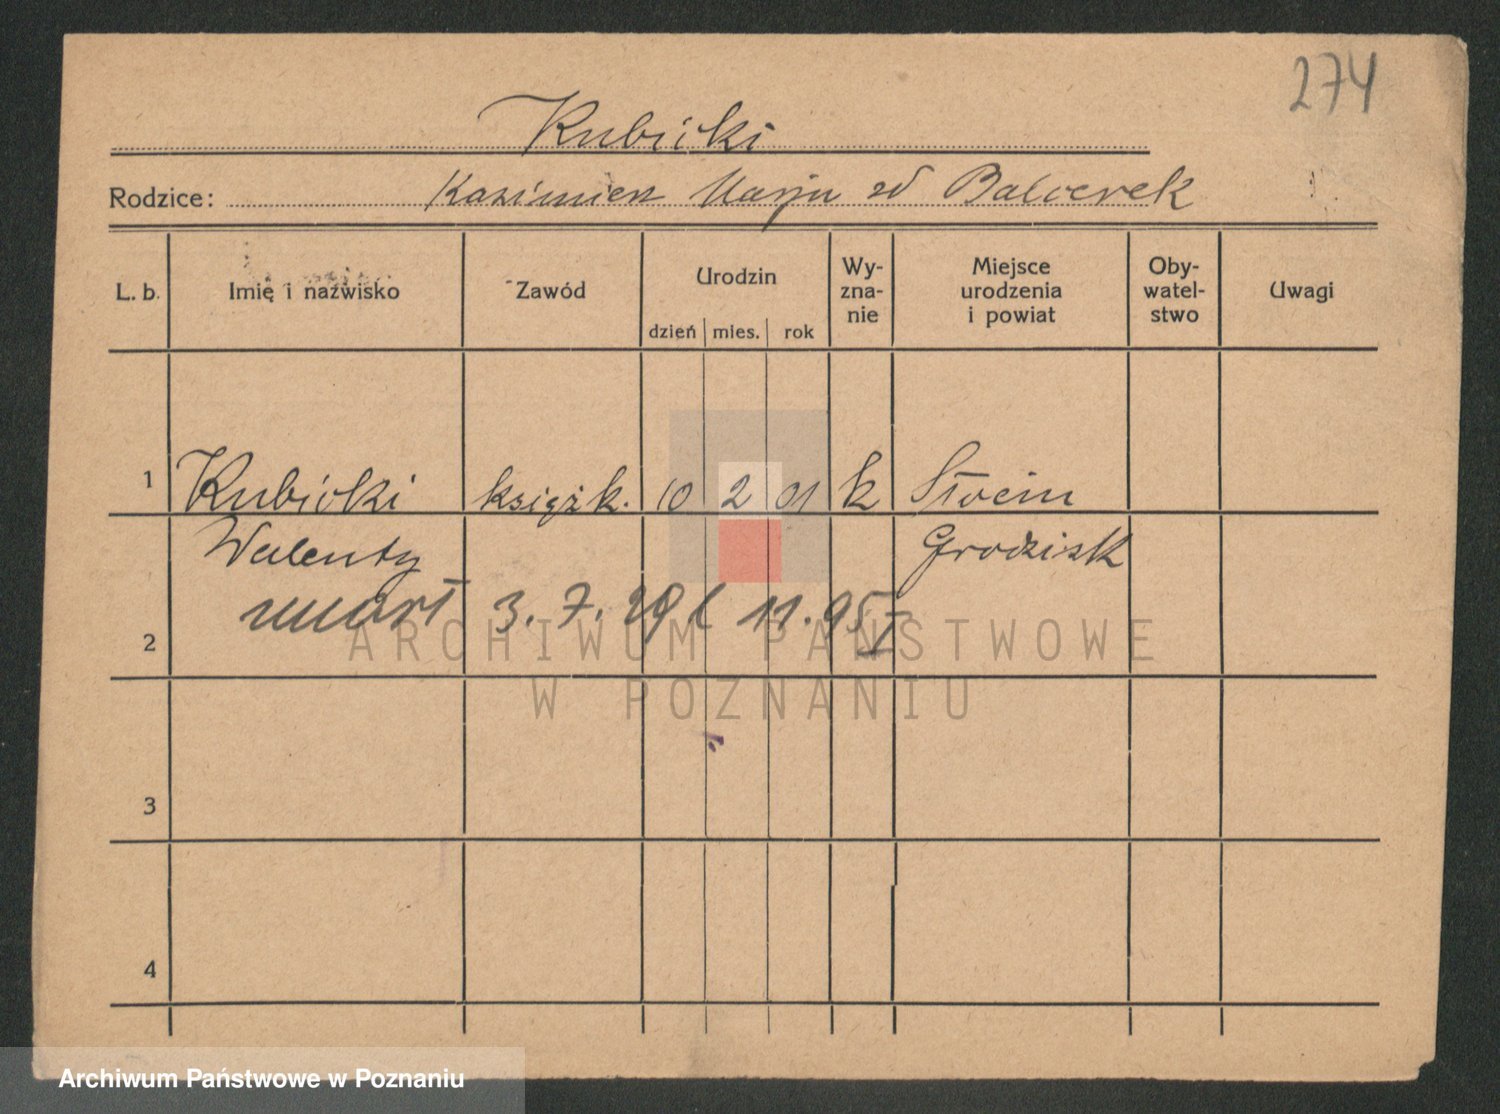 274
Kubicki
Rodzice: Kazimierz Marja zd Balcerek
L. b. Imię i nazwisko Zawód Urodzin dzień mies. rok Wy-zna-nie Miejsce urodzenia i powiat Oby-watel-stwo Uwagi
1 Kubicki książk. 10 2 01 k
Walenty Grodzisk
2 umarł 3. 7. 29
ARCHIWUM PAŃSTWOWE
W POZNANIU
3
4
Archiwum Państwowe w Poznaniu